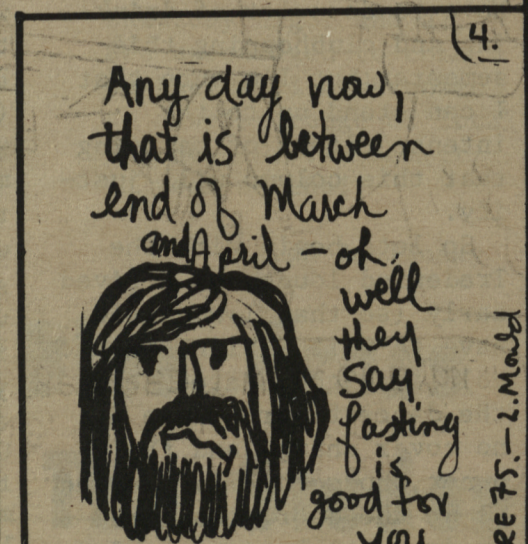 4.
Any day now,
that is between
end of March
and April – oh
well
they
say
fasting
is
good for
you
RE 75. – L. Mould